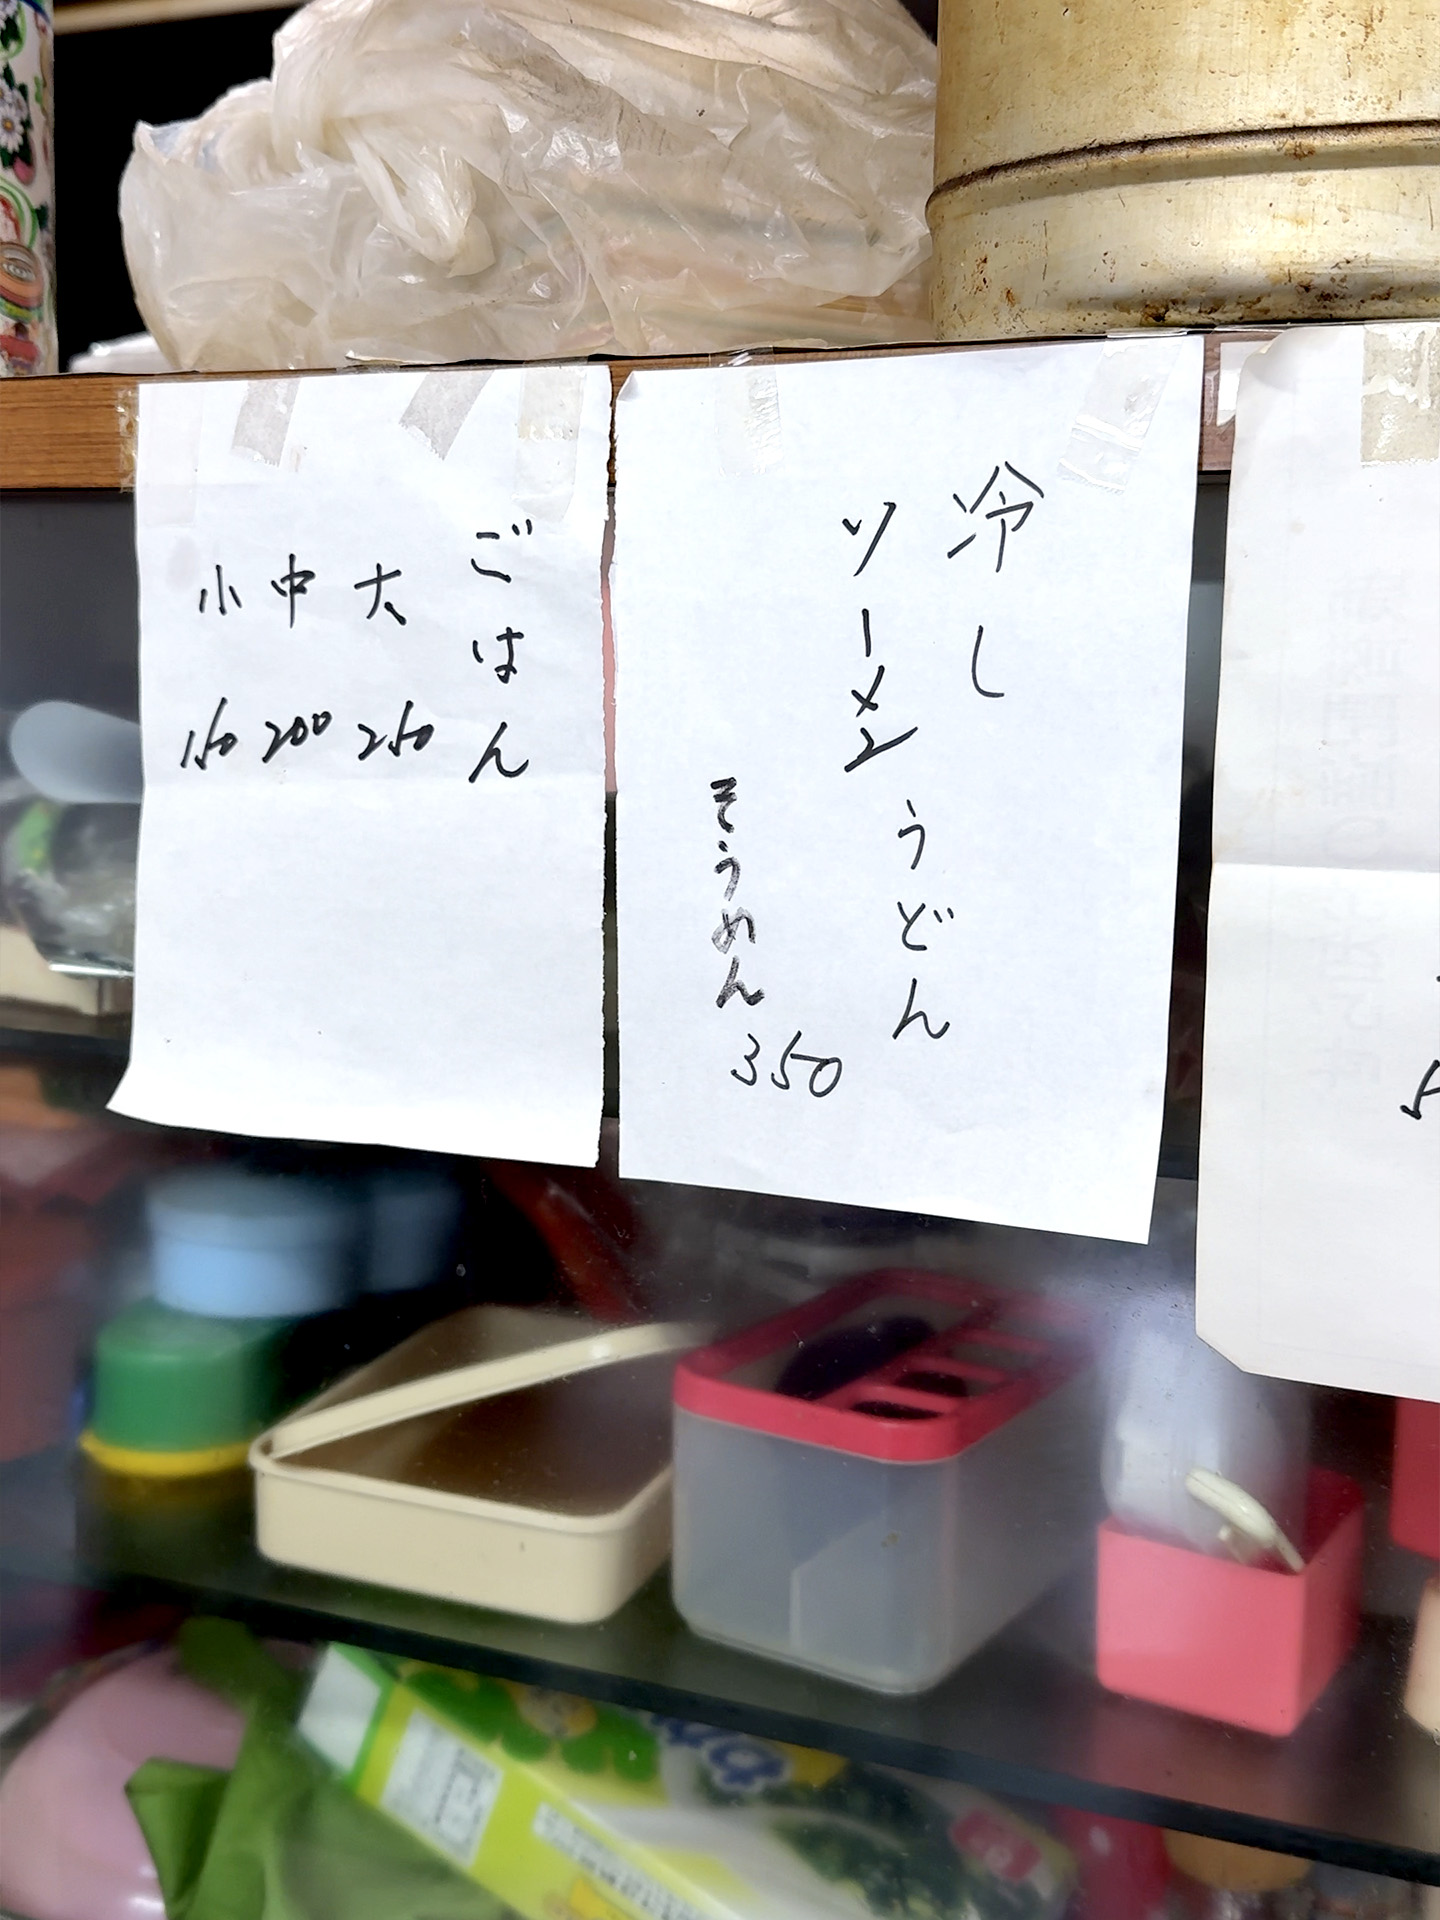 冷し
うどん
ソーメン
そうめん
350
ごはん
大 250
中 200
小 150